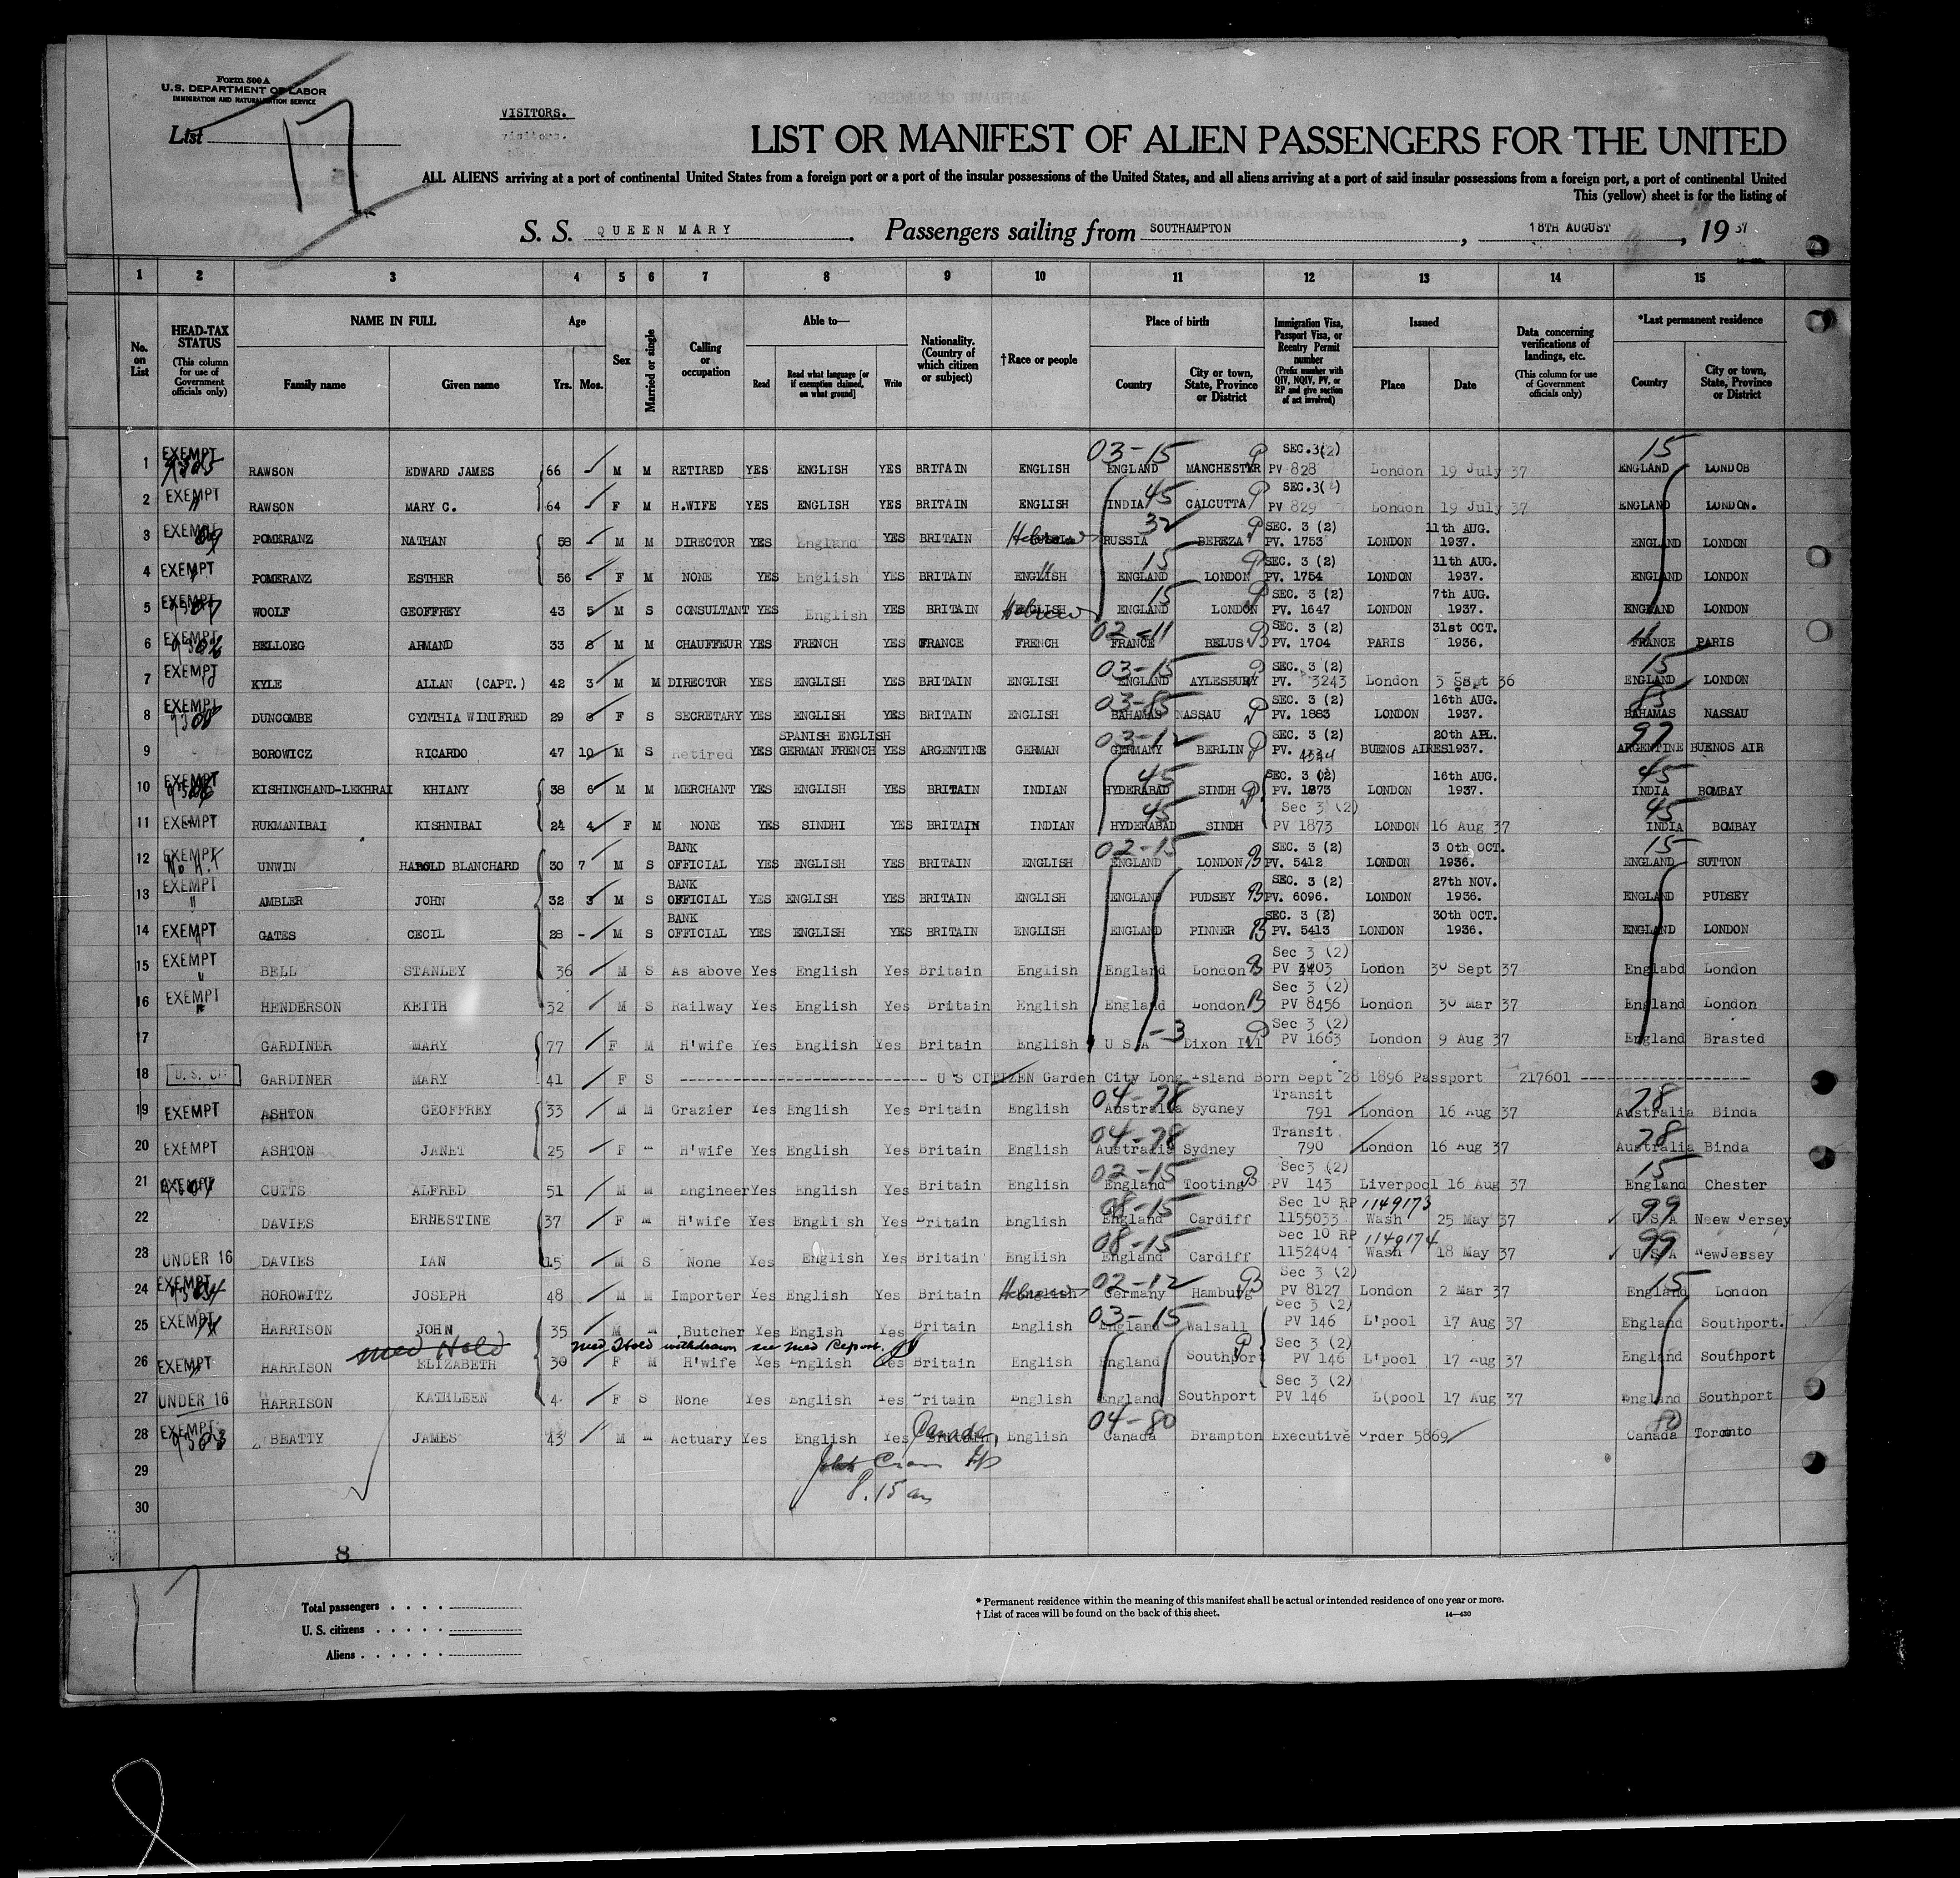 Form 500 A
U.S. DEPARTMENT OF LABOR
IMMIGRATION AND NATURALIZATION SERVICE
List 17
VISITORS.
visitors.
LIST OR MANIFEST OF ALIEN PASSENGERS FOR THE UNITED
ALL ALIENS arriving at a port of continental United States from a foreign port or a port of the insular possessions of the United States, and all aliens arriving at a port of said insular possessions from a foreign port, a port of continental United
This (yellow) sheet is for the listing of
S. S. QUEEN MARY. Passengers sailing from SOUTHAMPTON, 18TH AUGUST, 19 37
1 2 3 4 5 6 7 8 9 10 11 12 13 14 15
No. on List
HEAD-TAX STATUS (This column for use of Government officials only)
NAME IN FULL Family name Given name
Age Yrs. Mos.
Sex
Married or single
Calling or occupation
Able to— Read Read what language [or if exemption claimed, on what ground] Write
Nationality. (Country of which citizen or subject)
†Race or people
Place of birth Country City or town, State, Province or District
Immigration Visa, Passport Visa, or Reentry Permit number (Prefix number with QIV, NQIV, PV, or RP and give section of act involved)
Issued Place Date
Data concerning verifications of landings, etc. (This column for use of Government officials only)
*Last permanent residence Country City or town, State, Province or District
1 EXEMPT RAWSON EDWARD JAMES 66 M M RETIRED YES ENGLISH YES BRITAIN ENGLISH 03-15 ENGLAND MANCHESTER SEC.3(2) PV 828 London 19 July 37 15 ENGLAND LONDOB
2 EXEMPT RAWSON MARY C. 64 F M H.WIFE YES ENGLISH YES BRITAIN ENGLISH 45 INDIA CALCUTTA SEC.3( ) PV 829 London 19 July 37 ENGLAND LONDON.
3 EXEMPT POMERANZ NATHAN 58 - M M DIRECTOR YES England YES BRITAIN Hebrew 32 RUSSIA BEREZA SEC. 3 (2) PV. 1753 LONDON 11th AUG. 1937. ENGLAND LONDON
4 EXEMPT POMERANZ ESTHER 56 - F M NONE YES English YES BRITAIN ENGLISH 15 ENGLAND LONDON SEC. 3 (2) PV. 1754 LONDON 11th AUG. 1937. ENGLAND LONDON
5 EXEMPT WOOLF GEOFFREY 43 5 M S CONSULTANT YES English YES BRITAIN ENGLISH Hebrew 15 ENGLAND LONDON SEC. 3 (2) PV. 1647 LONDON 7th AUG. 1937. ENGLAND LONDON
6 EXEMPT BELLOEG ARMAND 33 8 M M CHAUFFEUR YES FRENCH YES FRANCE FRENCH 02-11 FRANCE BELUS SEC. 3 (2) PV. 1704 PARIS 31st OCT. 1936. 11 FRANCE PARIS
7 EXEMPT KYLE ALLAN (CAPT.) 42 3 M M DIRECTOR YES ENGLISH YES BRITAIN ENGLISH 03-15 ENGLAND AYLESBURY SEC. 3 (2) PV. 3243 London 3 Sept 36 15 ENGLAND LONDON
8 EXEMPT 9308 DUNCOMBE CYNTHIA WINIFRED 29 8 F S SECRETARY YES ENGLISH YES BRITAIN ENGLISH 03-85 BAHAMAS NASSAU SEC. 3 (2) PV. 1883 LONDON 16th AUG. 1937. 85 BAHAMAS NASSAU
9 BOROWICZ RICARDO 47 10 M S Retired YES SPANISH ENGLISH GERMAN FRENCH YES ARGENTINE GERMAN 03-12 GERMANY BERLIN SEC. 3 (2) PV. 4344 BUENOS AIRES 20th APL. 1937. 97 ARGENTINE BUENOS AIR
10 EXEMPT KISHINCHAND-LEKHRAI KHIANY 38 6 M M MERCHANT YES ENGLISH YES BRITAIN INDIAN 45 HYDERABAD SINDH SEC. 3 (2) PV. 1873 LONDON 16th AUG. 1937. 45 INDIA BOMBAY
11 EXEMPT RUKMANIBAI KISHNIBAI 24 4 F M NONE YES SINDHI YES BRITAIN INDIAN 45 HYDERABAD SINDH Sec 3 (2) PV 1873 LONDON 16 Aug 37 45 INDIA BOMBAY
12 EXEMPT No H.T UNWIN HAROLD BLANCHARD 30 7 M S BANK OFFICIAL YES ENGLISH YES BRITAIN ENGLISH 02-15 ENGLAND LONDON SEC. 3 (2) PV. 5412 LONDON 3 0th OCT. 1936. 15 ENGLAND SUTTON
13 EXEMPT " AMBLER JOHN 32 3 M S BANK OFFICIAL YES ENGLISH YES BRITAIN ENGLISH ENGLAND PUDSEY SEC. 3 (2) PV. 6096. LONDON 27th NOV. 1936. ENGLAND PUDSEY
14 EXEMPT GATES CECIL 28 - M S BANK OFFICIAL YES ENGLISH YES BRITAIN ENGLISH ENGLAND PINNER SEC. 3 (2) PV. 5413 LONDON 30th OCT. 1936. ENGLAND LONDON
15 EXEMPT BELL STANLEY 36 M S As above Yes English Yes Britain English England London Sec 3 (2) PV 3403 London 30 Sept 37 Englabd London
16 EXEMPT HENDERSON KEITH 32 M S Railway Yes English Yes Britain English England London Sec 3 (2) PV 8456 London 30 Mar 37 England London
17 GARDINER MARY 77 F M H'wife Yes English Yes Britain English -3 U S A Dixon Ill Sec 3 (2) PV 1663 London 9 Aug 37 England Brasted
18 U.S. CIT GARDINER MARY 41 F S U S CITIZEN Garden City Long Island Born Sept 28 1896 Passport 217601
19 EXEMPT ASHTON GEOFFREY 33 M M Grazier Yes English Yes Britain English 04-78 Australia Sydney Transit 791 London 16 Aug 37 78 Australia Binda
20 EXEMPT ASHTON JANET 25 F M H'wife Yes English Yes Britain English 04-78 Australia Sydney Transit 790 London 16 Aug 37 78 Australia Binda
21 EXEMPT CUTTS ALFRED 51 M M Engineer Yes English Yes Britain English 02-15 England Tooting Sec3 (2) PV 143 Liverpool 16 Aug 37 15 England Chester
22 DAVIES ERNESTINE 37 F M H'wife Yes English Yes Britain English 08-15 England Cardiff Sec 10 RP 1149173 1155033 Wash 25 May 37 99 U S A Neew Jersey
23 UNDER 16 DAVIES IAN 15 M S None Yes English Yes Britain English 08-15 England Cardiff Sec 10 RP 1149174 1152404 Wash 18 May 37 99 U S A NewJersey
24 EXEMPT HOROWITZ JOSEPH 48 M M Importer Yes English Yes Britain English Hebrew 02-12 Germany Hamburg Sec 3 (2) PV 8127 London 2 Mar 37 15 England London
25 EXEMPT HARRISON JOHN 35 M M Butcher Yes Englsh Yes Britain English 03-15 England Walsall Sec 3 (2) PV 146 L'pool 17 Aug 37 England Southport.
Med Hold Med Hold withdrawn see Med Report.
26 EXEMPT HARRISON ELIZABETH 30 F M H'wife Yes English Yes Britain English England Southport Sec 3 (2) PV 146 L'pool 17 Aug 37 England Southport
27 UNDER 16 HARRISON KATHLEEN 4 F S None Yes English Yes Britain English England Southport Sec 3 (2) PV 146 L(pool 17 Aug 37 England Southport
28 EXEMPT 9303 BEATTY JAMES 43 M M Actuary Yes English Yes Canada English 04-80 Canada Brampton Executive Order 5869 80 Canada Toronto
29
30 8.15 am
8
17
Total passengers
U. S. citizens
Aliens
* Permanent residence within the meaning of this manifest shall be actual or intended residence of one year or more.
† List of races will be found on the back of this sheet.
14—430